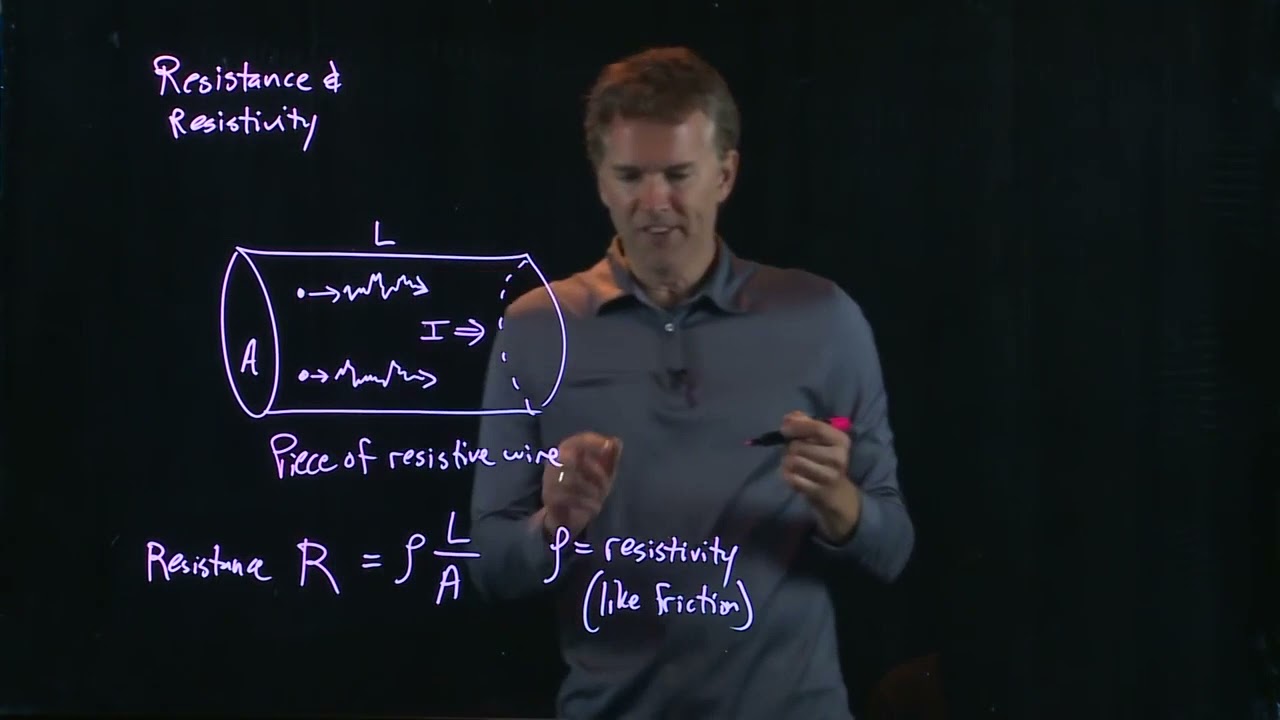 Resistance &
Resistivity
L
I ⇒
A
Piece of resistive wire
Resistance R = ρ L/A ρ = resistivity
(like friction)